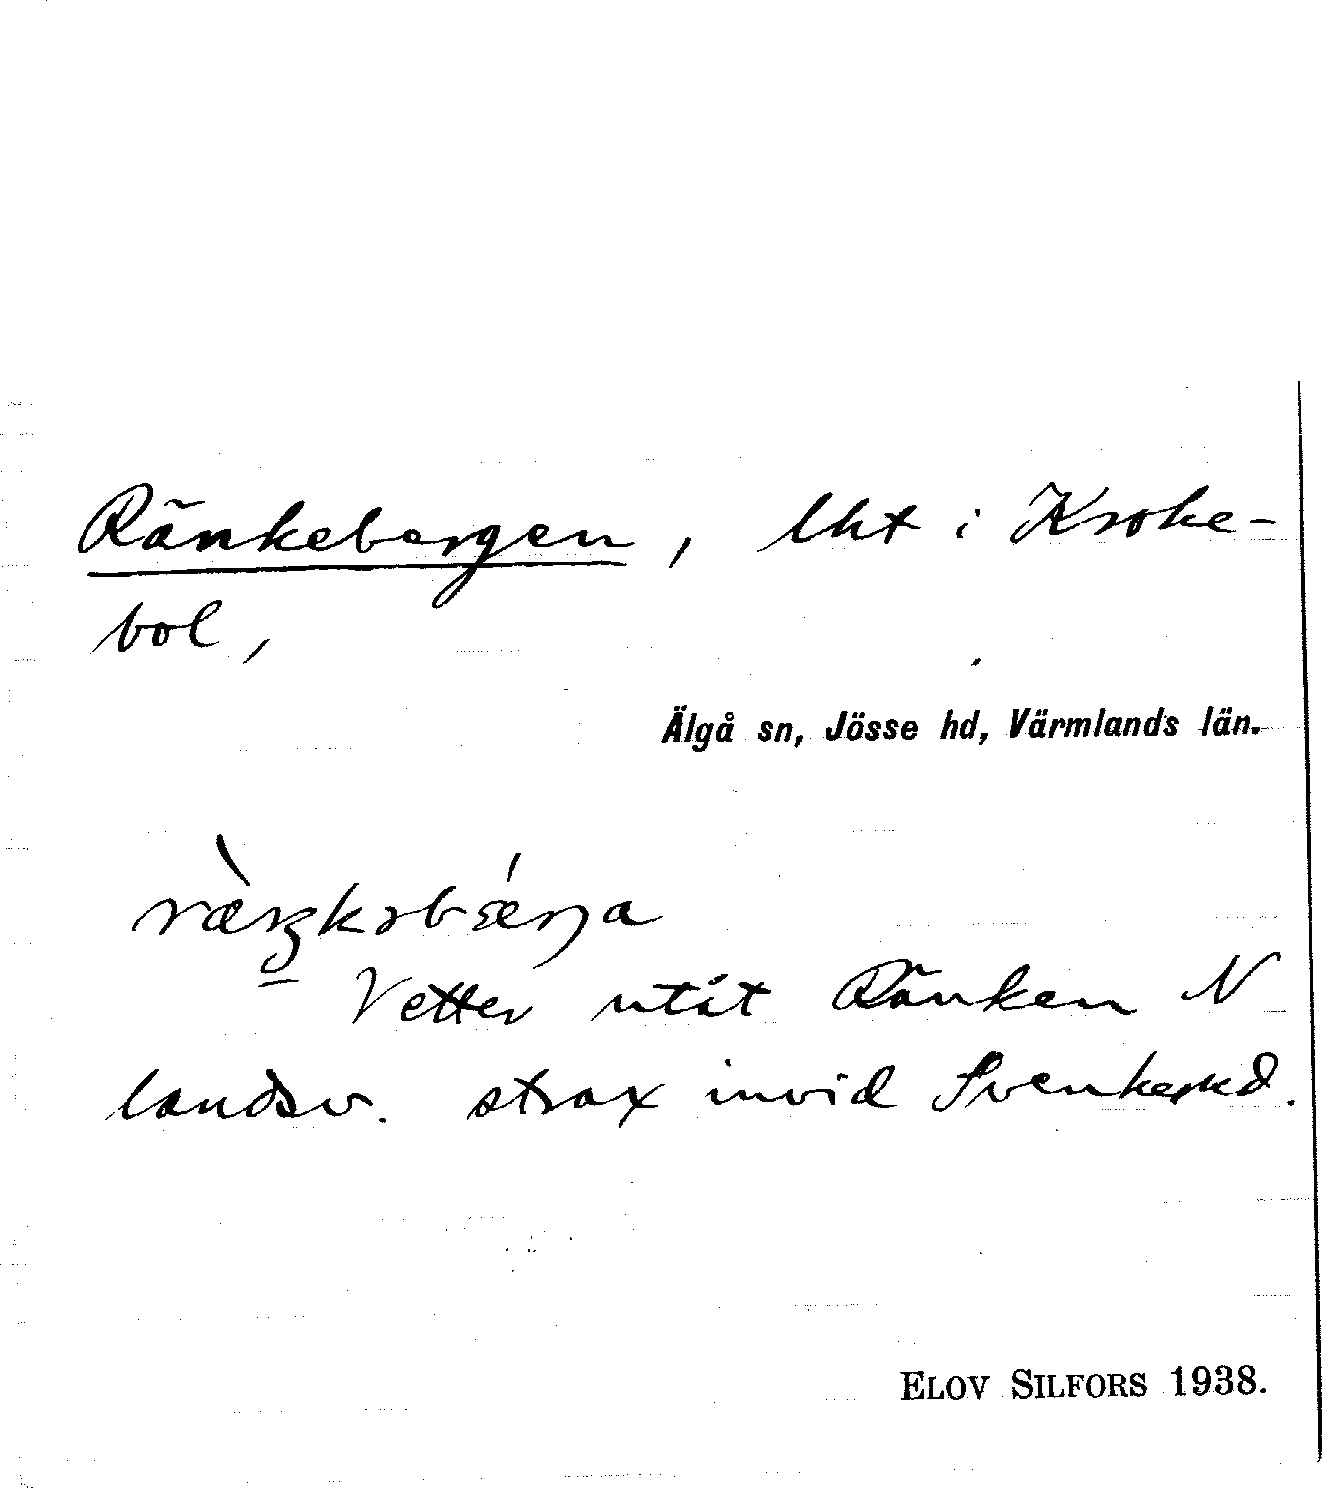 Ränkebergen, lht i Kroke-
bol,
Älgå sn, Jösse hd, Värmlands län.
Vetter utåt Ränken N
landsv. strax invid
ELOV SILFORS 1938.